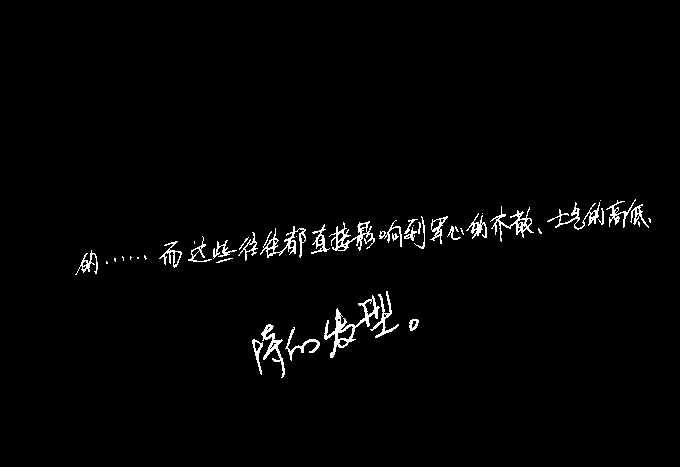 的……而这些往往都直接影响到军心的木散、士气的高低、
的发型。